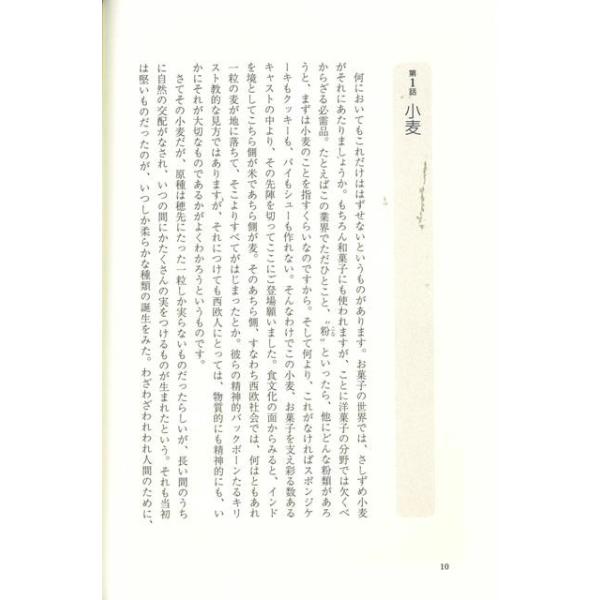 第1話 小麦
何においてもこれだけははずせないというものがあります。お菓子の世界では、さしずめ小麦
がそれにあたりましょうか。もちろん和菓子にも使われますが、ことに洋菓子の分野では欠くべ
からざる必需品。たとえばこの業界でただひとこと、“粉”といったら、他にどんな粉類があろ
うと、まずは小麦のことを指すくらいなのですから。そして何より、これがなければスポンジケ
ーキもクッキーも、パイもシューも作れない。そんなわけでこの小麦、お菓子を支え彩る数ある
キャストの中より、その先陣を切ってここにご登場願いました。食文化の面からみると、インド
を境としてこちら側が米であちら側が麦。そのあちら側、すなわち西欧社会では、何はともあれ
一粒の麦が地に落ちて、そこよりすべてがはじまったとか。彼らの精神的バックボーンたるキリ
スト教的な見方ではありますが、それにつけても西欧人にとっては、物質的にも精神的にも、い
かにそれが大切なものであるかがよくわかろうというものです。
さてその小麦だが、原種は穂先にたった一粒しか実らないものだったらしいが、長い間のうち
に自然の交配がなされ、いつの間にかたくさんの実をつけるものが生まれたという。それも当初
は堅いものだったのが、いつしか柔らかな種類の誕生をみた。わざわざわれわれ人間のために、
10